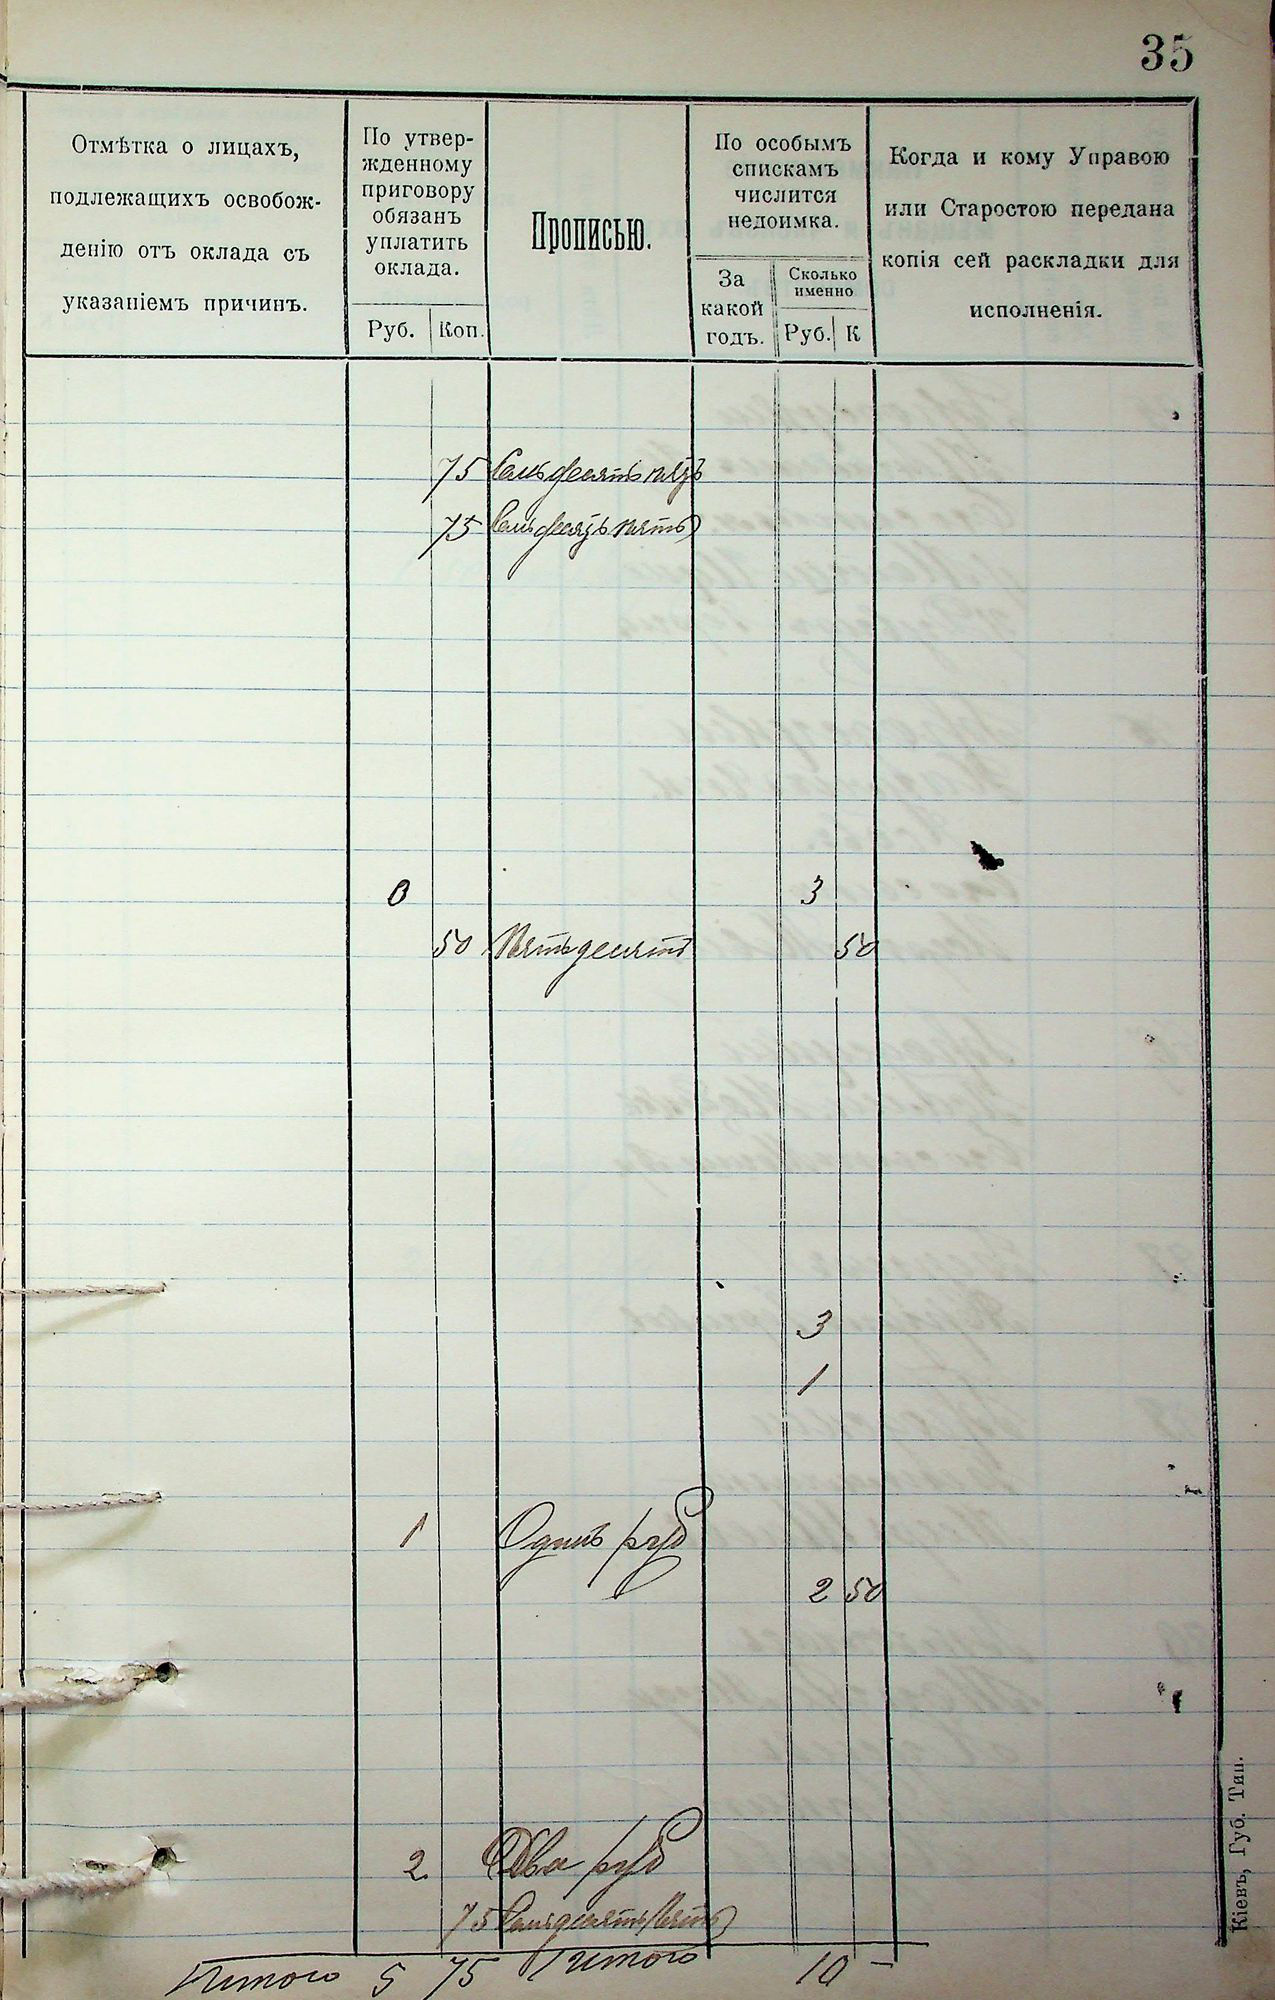 35
Отмѣтка о лицахъ,
подлежащихъ освобож-
денію отъ оклада съ
указаніемъ причинъ.
По утвер-
жденному
приговору
обязанъ
уплатить
оклада.
Руб. Коп.
Прописью.
По особымъ
спискамъ
числится
недоимка.
За
какой
годъ.
Сколько
именно
Руб. К
Когда и кому Управою
или Старостою передана
копія сей раскладки для
исполненія.
75 Семьдесятъ пять
75 Семьдесятъ пять
0 3
50 Пятьдесятъ 50
3
1
1 Одинъ руб
2 50
2 Два руб
75 Семьдесятъ пять
Итого 5 75 Итого 10 –
Кіевъ, Губ. Тип.